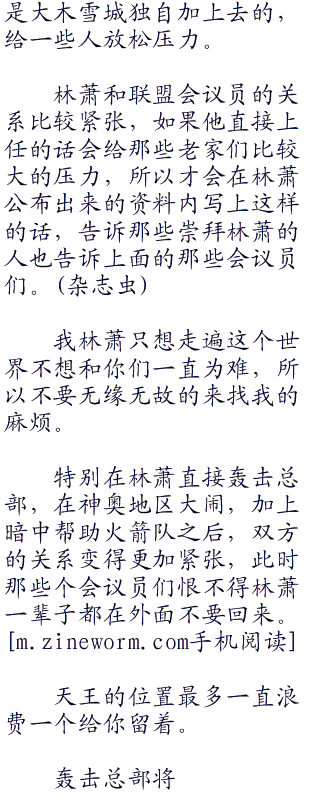 是大木雪城独自加上去的，
给一些人放松压力。
林萧和联盟会议员的关
系比较紧张，如果他直接上
任的话会给那些老家们比较
大的压力，所以才会在林萧
公布出来的资料内写上这样
的话，告诉那些崇拜林萧的
人也告诉上面的那些会议员
们。(杂志虫)
我林萧只想走遍这个世
界不想和你们一直为难，所
以不要无缘无故的来找我的
麻烦。
特别在林萧直接轰击总
部，在神奥地区大闹，加上
暗中帮助火箭队之后，双方
的关系变得更加紧张，此时
那些个会议员们恨不得林萧
一辈子都在外面不要回来。
[m.zineworm.com手机阅读]
天王的位置最多一直浪
费一个给你留着。
轰击总部将